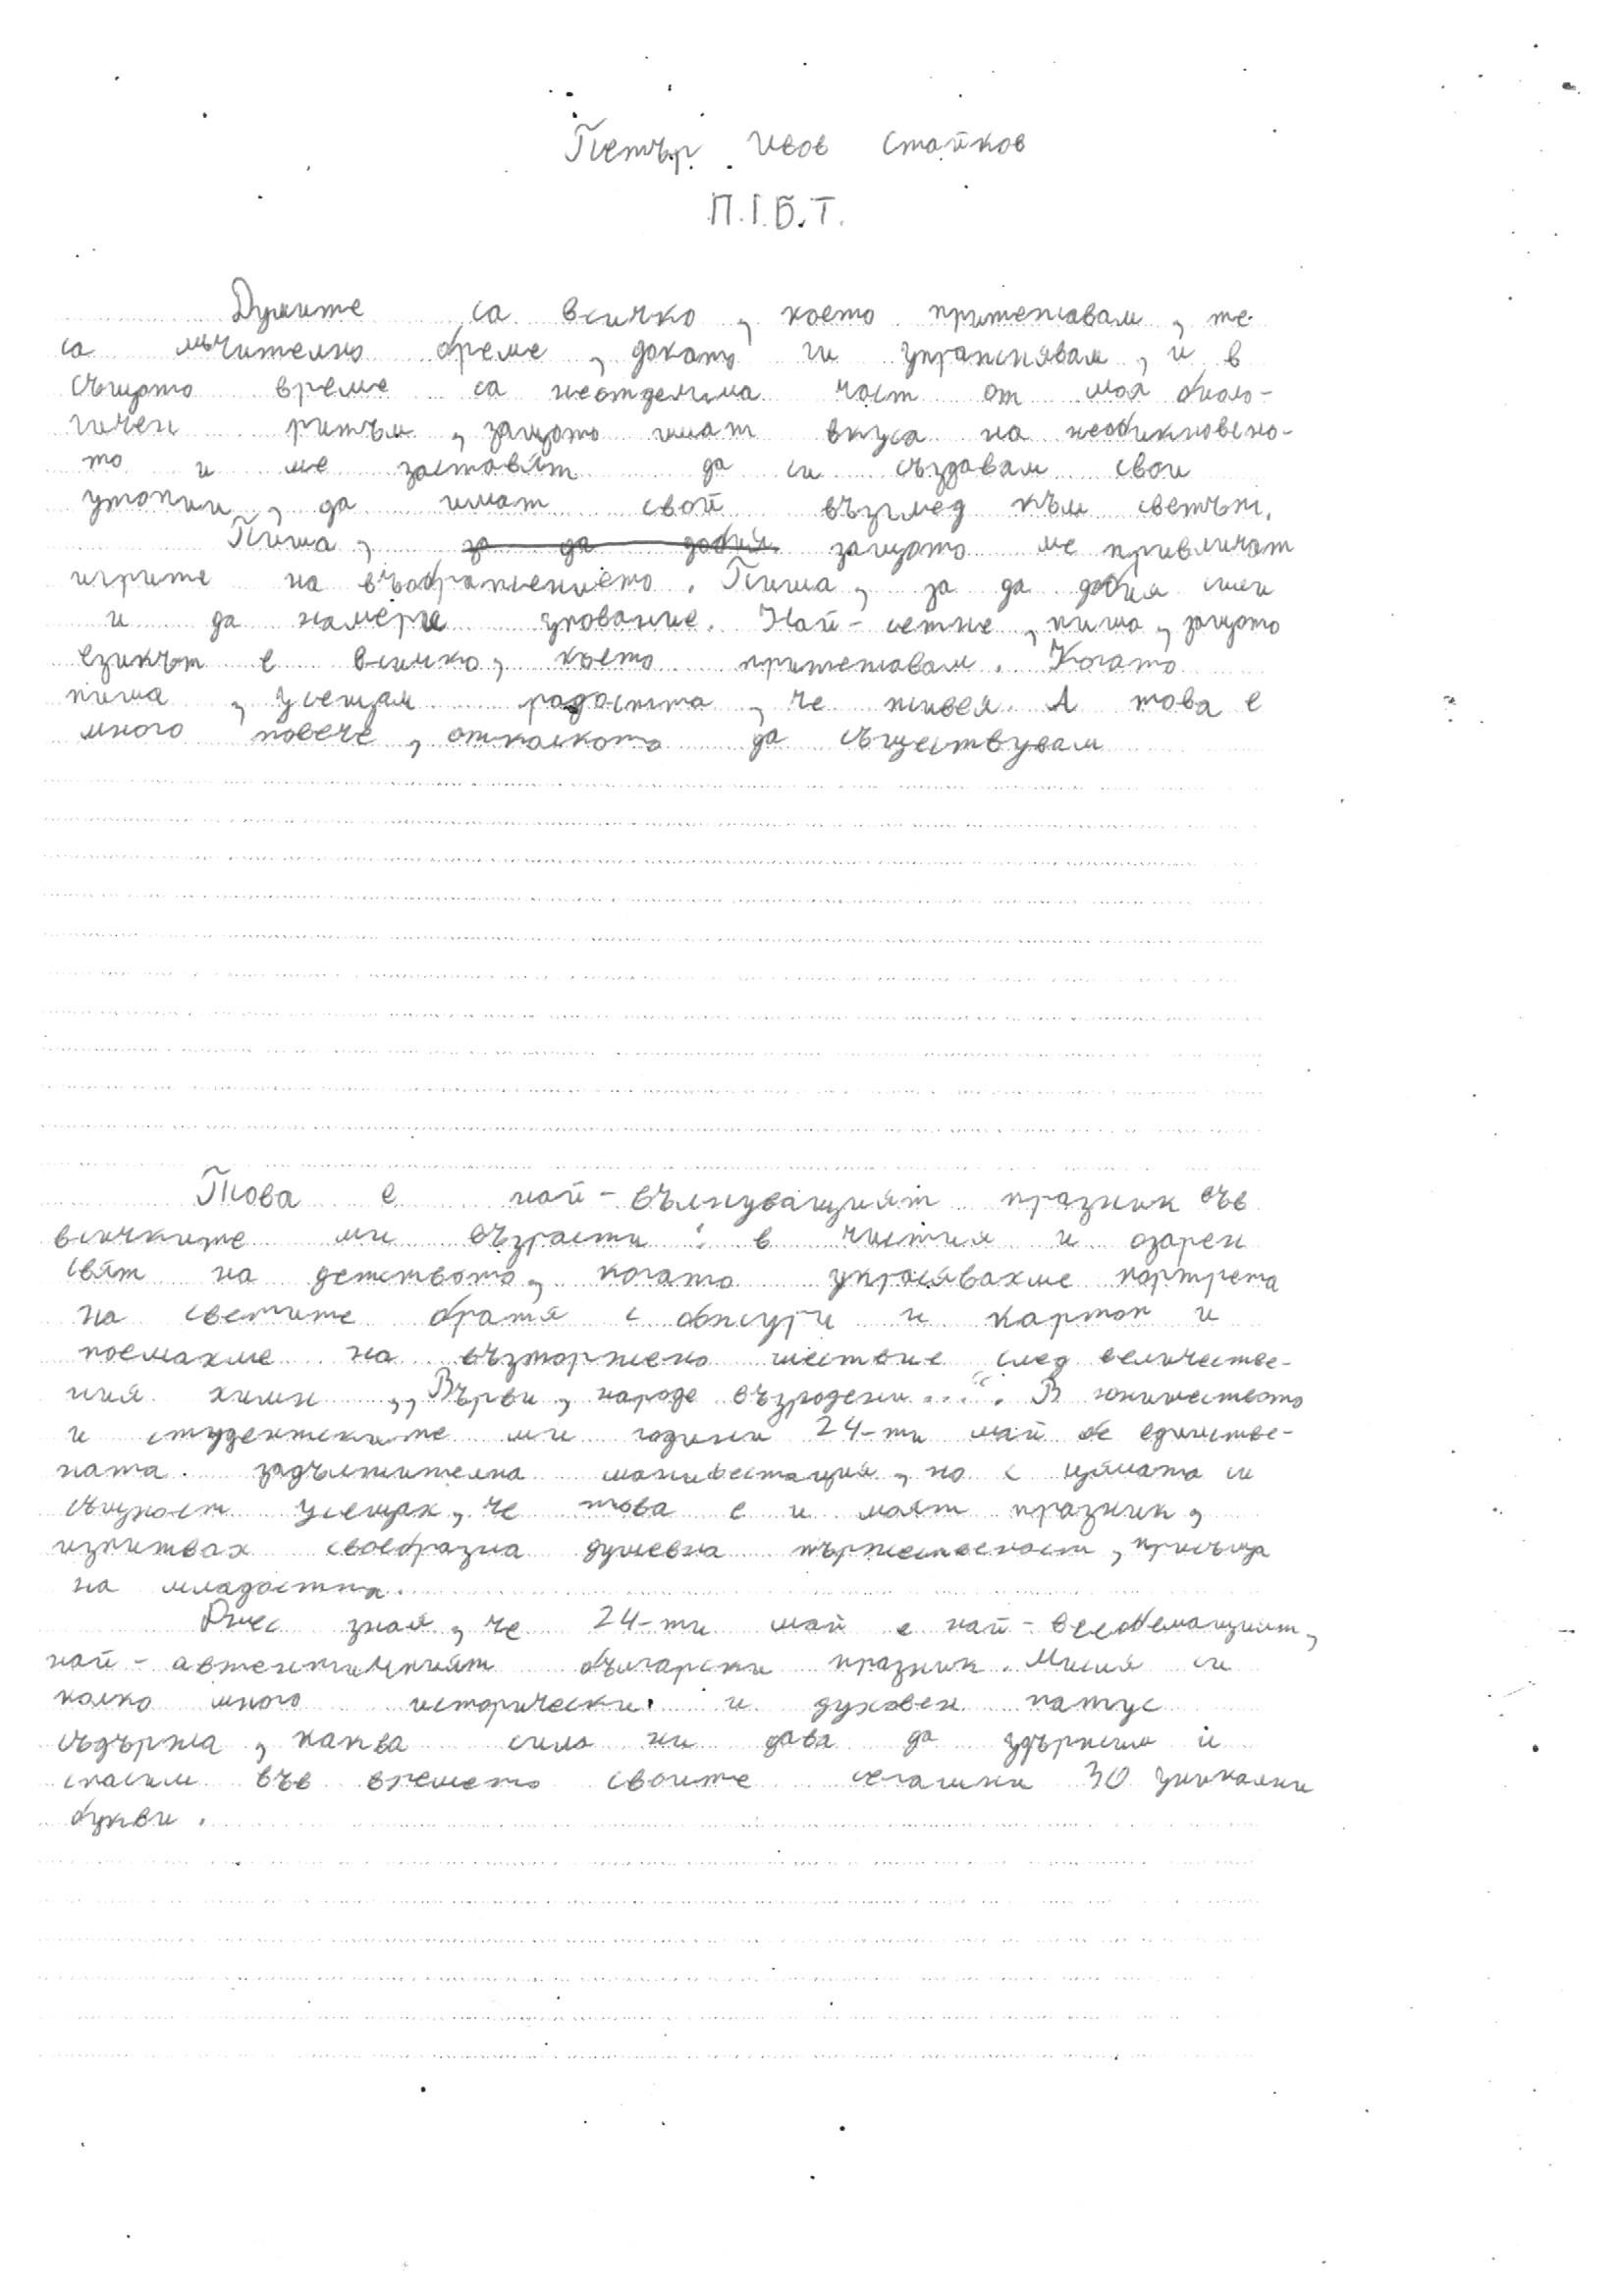 Петър Ивов Стайков
П.I.Б.Т.
Думите са всичко, което притежавам, те
са мъчително бреме, докато ги упражнявам, и в
същото време са неотделима част от моя биоло-
гичен ритъм, защото имат вкуса на необикновено-
то и ме заставят да си създавам свои
утопии, да имат свой възглед към светът.
Пиша, за да добия защото ме привличат
игрите на въображението. Пиша, за да добия сили
и да намеря упование. Най-сетне, пиша, защото
езикът е всичко, което притежавам. Когато
пиша, усещам радостта, че живея. А това е
много повече, отколкото да съществувам
Това е най-вълнуващият празник във
всичките ми възрасти: в чистия и озарен
свят на детството, когато украсявахме портрета
на светите братя с божури и картон и
поемахме на възторжено шествие след величестве-
ния химн „Върви, народе възродени...“. В юношеството
и студентските ми години 24-ти май бе единстве-
ната задължителна манифестация, но с цялата си
същност усещах, че това е и моят празник,
изпитвах своеобразна душевна тържественост, присъща
на младостта.
Днес зная, че 24-ти май е най-всеобемащият,
най-автентичният български празник. Мисля си
колко много исторически и духовен патус
съдържа, каква сила ни дава да удържим и
спасим във времето своите сегашни 30 уникални
букви.